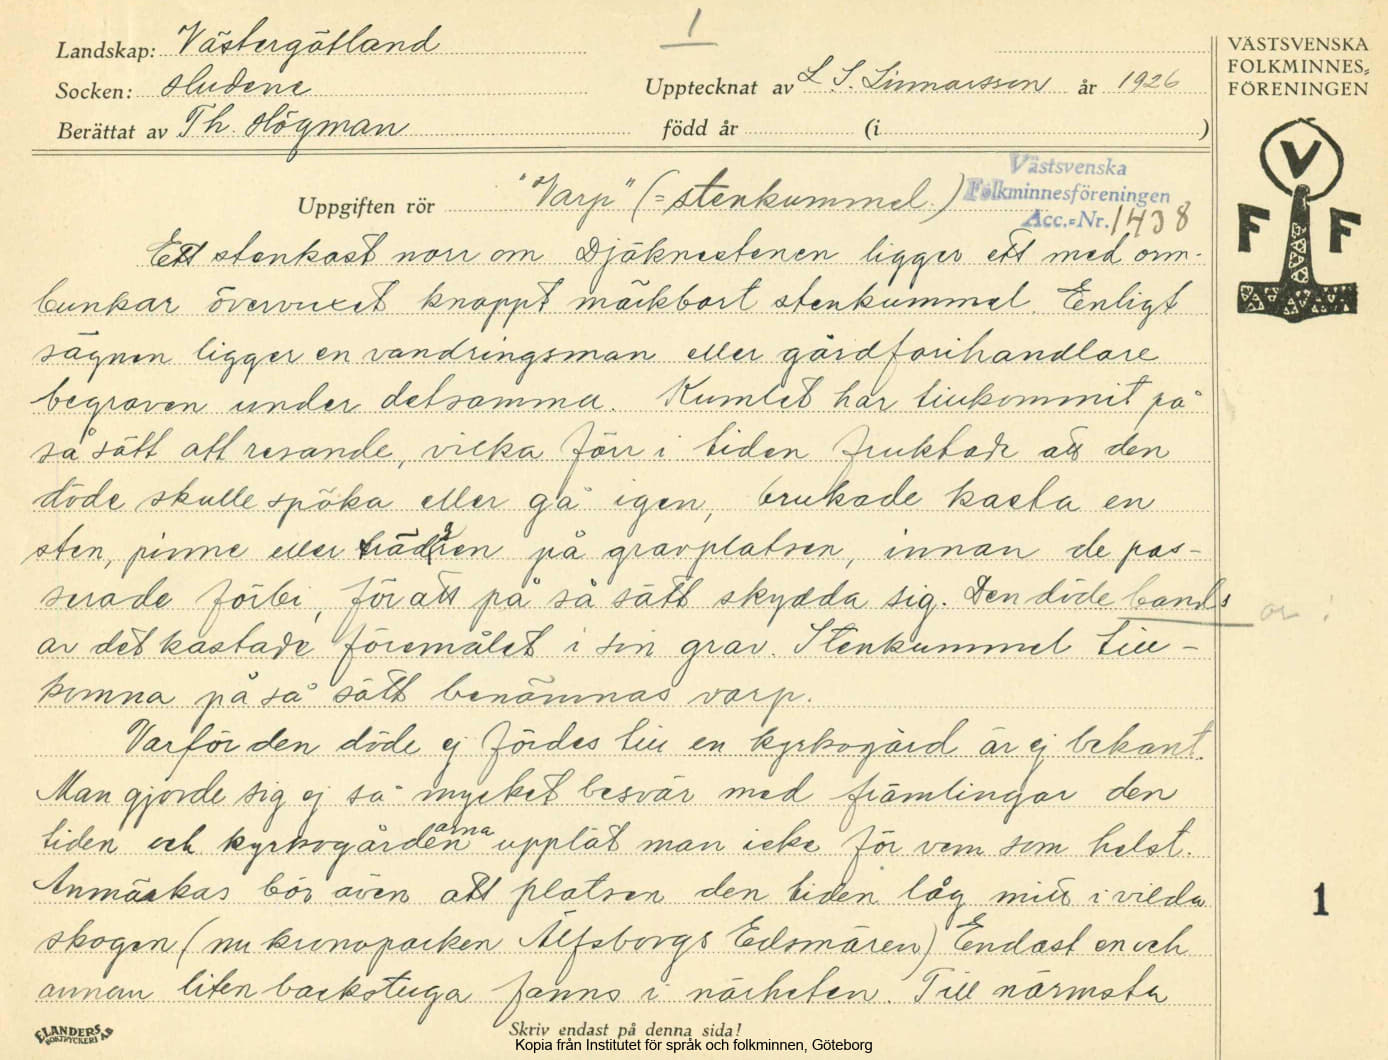 1
Landskap: Västergötland
Socken: Hudene
Upptecknat av L. S. Linnarsson år 1926
Berättat av Th. Högman
född år (i )
VÄSTSVENSKA
FOLKMINNES=
FÖRENINGEN
V
F F
Uppgiften rör "Varp" (= stenkummel.)
Västsvenska
Folkminnesföreningen
Acc.=Nr. 1438
Ett stenkast norr om Djäknestenen ligger ett med orm-
bunkar övervuxet knappt märkbart stenkummel. Enligt
sägnen ligger en vandringsman eller gårdfarihandlare
begraven under detsamma. Kumlet har tillkommit på
så sätt att resande, vilka förr i tiden fruktade att den
döde skulle spöka eller gå igen, brukade kasta en
sten, pinne eller trädgren på gravplatsen, innan de pas-
serade förbi, för att på så sätt skydda sig. Den döde bands
av det kastade föremålet i sin grav. Stenkummel till-
komna på så sätt benämnas varp.
Varför den döde ej fördes till en kyrkogård är ej bekant.
Man gjorde sig ej så mycket besvär med främlingar den
tiden och kyrkogårdenarna upplät man icke för vem som helst.
Anmärkas bör även att platsen den tiden låg mitt i vilda
skogen (nu kronoparken Älfsborgs Edsmären) Endast en och
annan liten backstuga fanns i närheten. Till närmsta
1
ELANDERS
BOKTRYCKERI AB
Skriv endast på denna sida!
Kopia från Institutet för språk och folkminnen, Göteborg